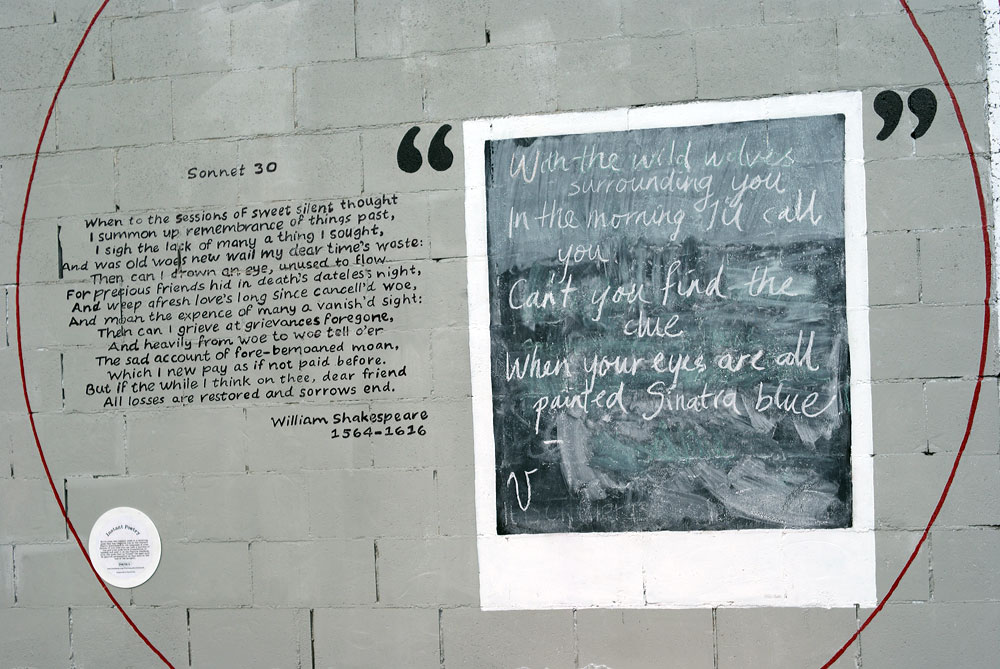 Sonnet 30
When to the sessions of sweet silent thought
I summon up remembrance of things past,
I sigh the lack of many a thing I sought,
And was old woes new wail my dear time's waste:
Then can I drown an eye, unused to flow
For precious friends hid in death's dateless night,
And weep afresh love's long since cancell'd woe,
And moan the expence of many a vanish'd sight:
Then can I grieve at grievances foregone,
And heavily from woe to woe tell o'er
The sad account of fore-bemoaned moan,
Which I new pay as if not paid before.
But if the while I think on thee, dear friend
All losses are restored and sorrows end.
William Shakespeare
1564-1616
“ ”
With the wild wolves
surrounding you
In the morning I'll call
you
Can't you find the
clue
When your eyes are all
painted Sinatra blue
V
Instant Poetry